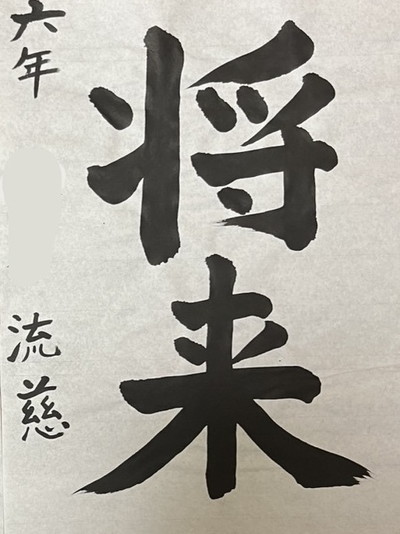 将来
六年
流慈